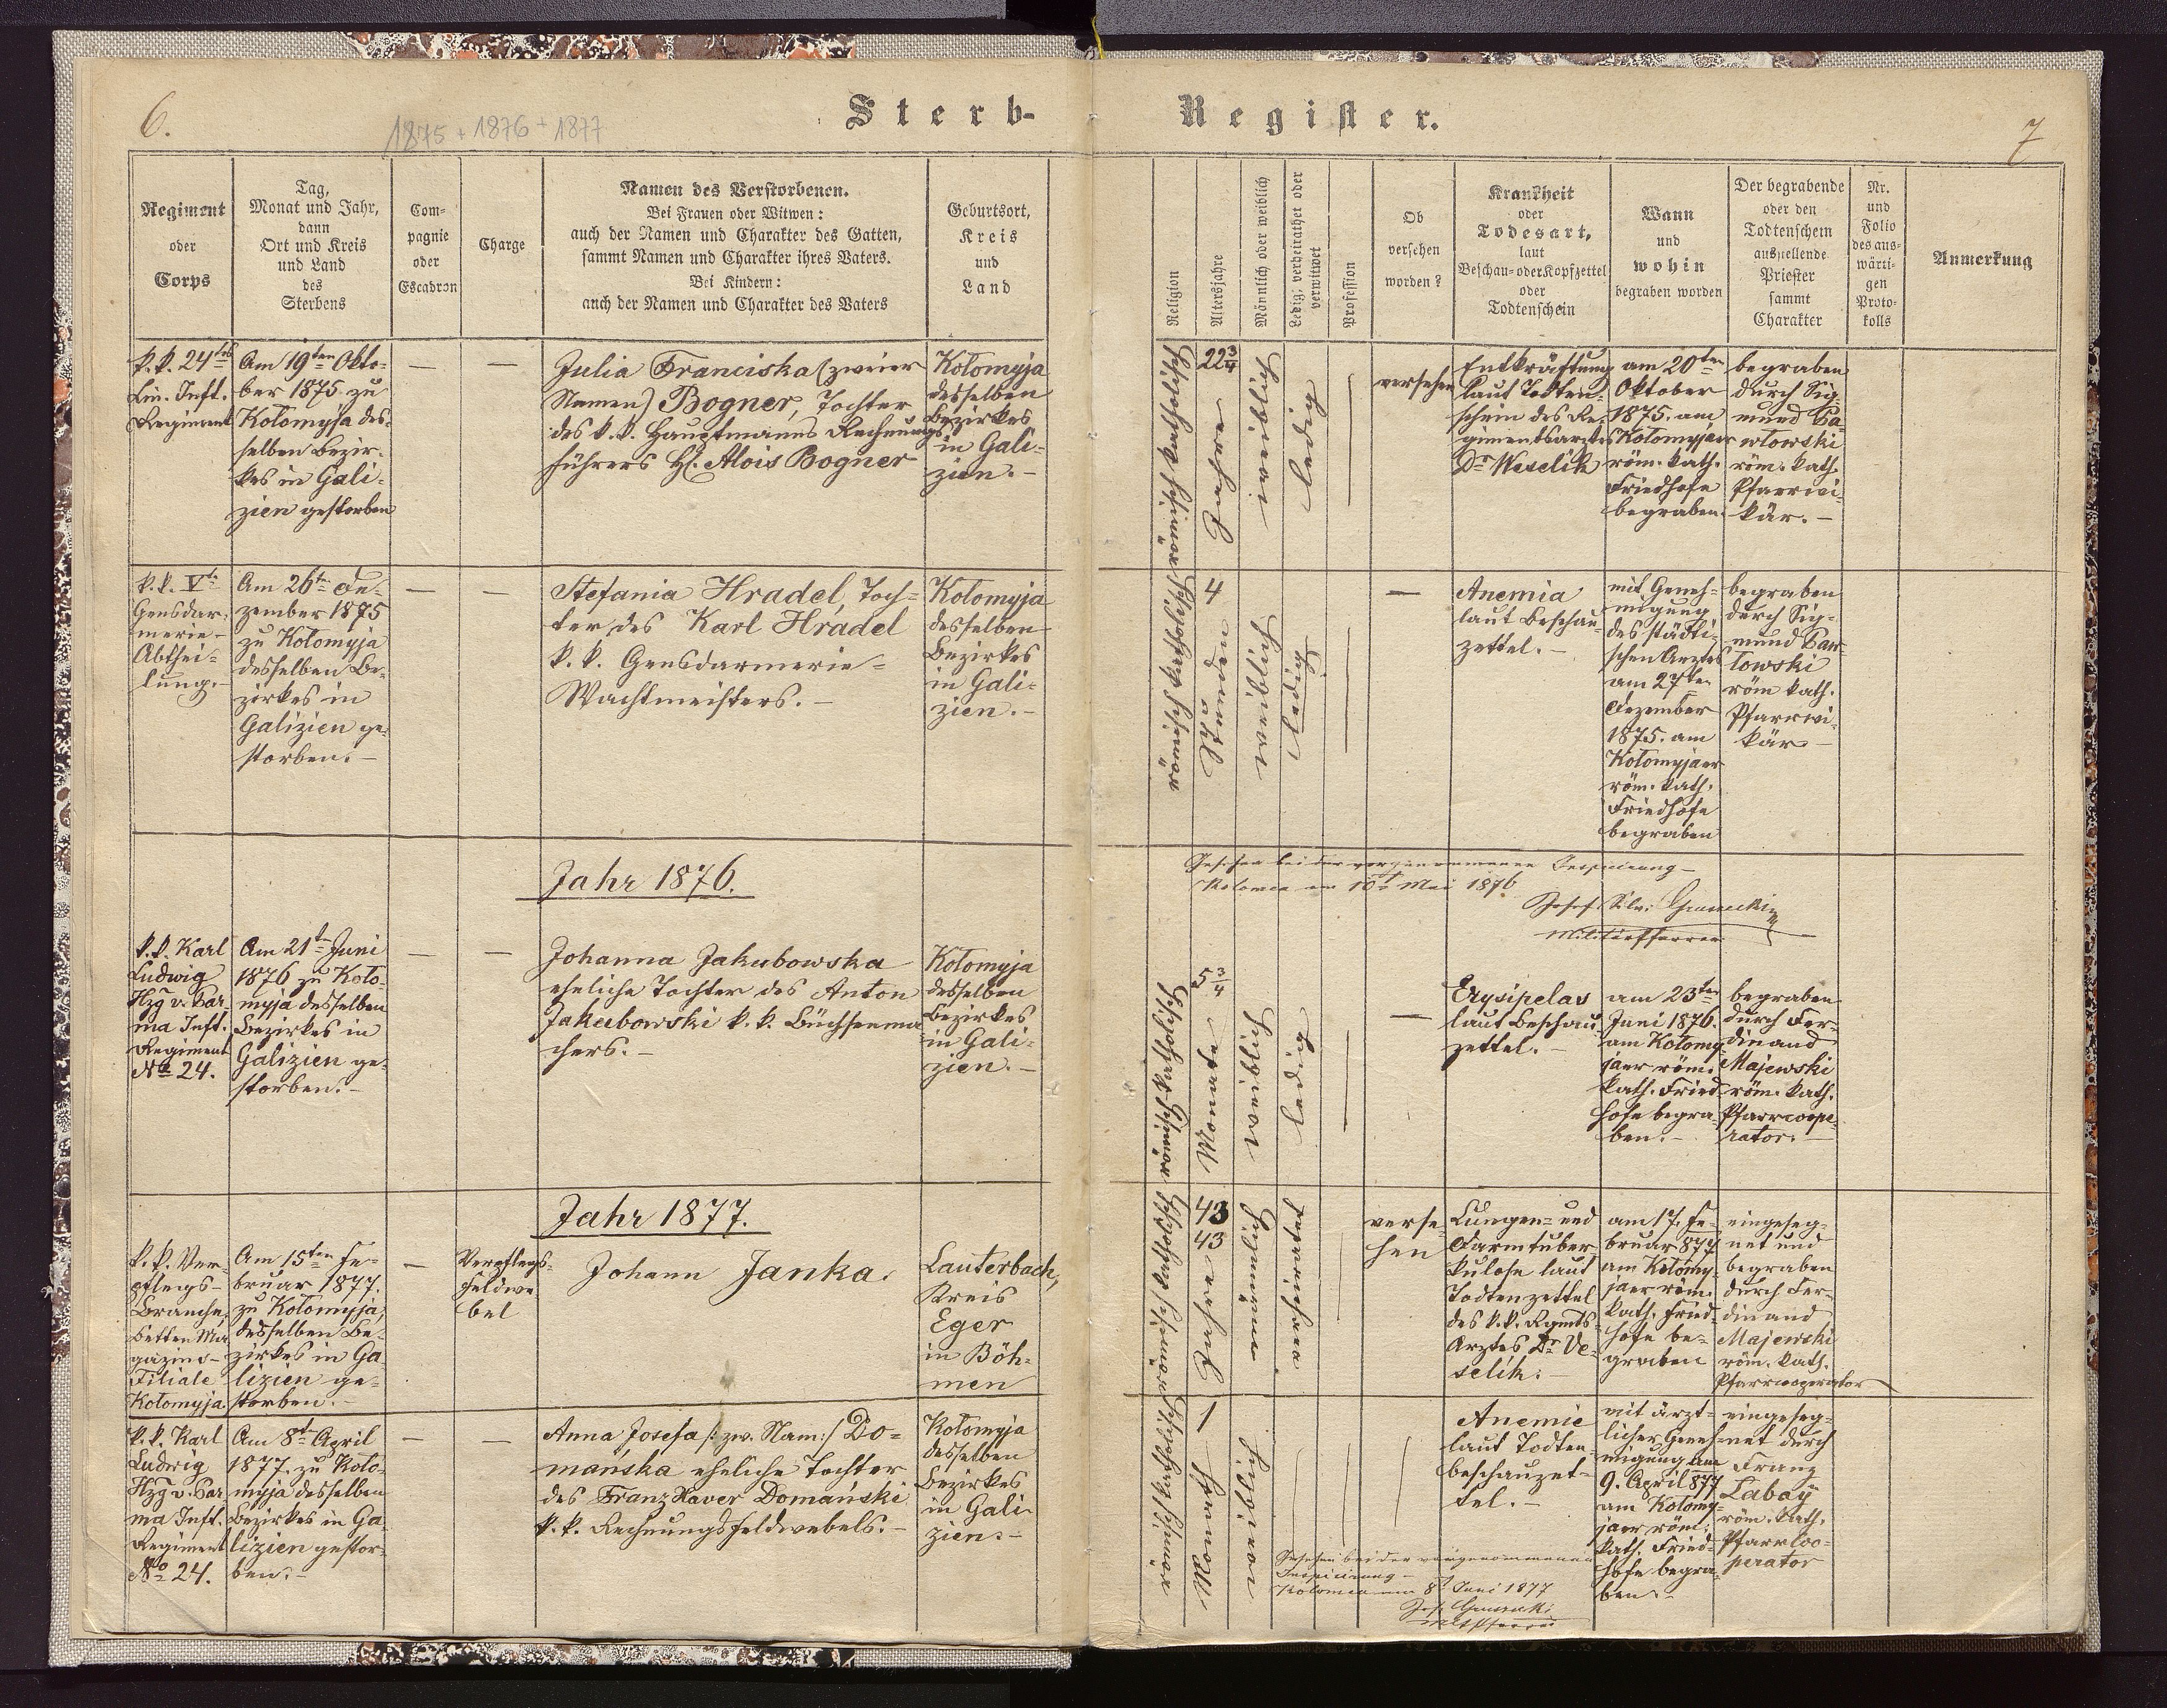 6.
1875 + 1876 + 1877
Sterb-
Register.
7
Regiment
oder
Corps
Tag,
Monat und Jahr,
dann
Ort und Kreis
und Land
des
Sterbens
Com-
pagnie
oder
Escadron
Charge
Namen des Verstorbenen.
Bei Frauen oder Witwen:
auch der Namen und Charakter des Gatten,
sammt Namen und Charakter ihres Vaters.
Bei Kindern:
auch der Namen und Charakter des Vaters
Geburtsort,
Kreis
und
Land
Religion
Altersjahre
Männlich oder weiblich
Ledig, verheirathet oder
verwitwet
Profession
Ob
versehen
worden?
Krankheit
oder
Todesart,
laut
Beschau- oder Kopfzettel
oder
Todtenschein
Wann
und
wohin
begraben worden
Der begrabende
oder den
Todtenschein
ausstellende
Priester
sammt
Charakter
Nr.
und
Folio
des aus-
wärti-
gen
Proto-
kolls
Anmerkung
k.k. 24tes
Lin. Inft.
Regiment
Am 19ten Okto-
ber 1875 zu
Kołomyja des-
selben Bezir-
kes in Gali-
zien gestorben
—
—
Julia Franciska (zweier
Namen) Bogner, Tochter
des k.k. Hauptmanns Rechnungs-
führers H. Alois Bogner
Kołomyja
desselben
Bezirkes
in Gali-
zien.-
römisch katholisch
22 3/4
Jahre
weiblich
ledig
—
versehen
Entkräftung
laut Todten-
schein des Re-
gimentsarztes
Dr Weselik
am 20ten
Oktober
1875. am
Kołomyjaer
röm. kath.
Friedhofe
begraben.
begraben
durch Sig-
mund Pa-
włowski
röm. kath.
Pfarrvi-
kär.-
k.k. Vte
Gensdar-
merie-
Abthei-
lung.-
Am 26te De-
zember 1875
zu Kołomyja
desselben Be-
zirkes in
Galizien ge-
storben.-
—
—
Stefania Hradel, Toch-
ter des Karl Hradel
k.k. Gensdarmerie-
Wachtmeisters.-
Kołomyja
desselben
Bezirkes
in Gali-
zien.-
römisch katholisch
4
Stunden
weiblich
ledig
—
—
Anemia
laut Beschau-
zettel.-
mit Geneh-
migung
des städti-
schen Arztes
am 27ten
Dezember
1875. am
Kołomyjaer
röm. kath.
Friedhofe
begraben
begraben
durch Sig-
mund Paw-
łowski
röm kath.
Pfarrvi-
kär-
Jahr 1876.
Gesehen bei der vorgenommenen Inspicirung-
Kolomea am 10t Mai 1876
Josef
Militärpfarrer
k.k. Karl
Ludwig
Hzg v. Par-
ma Inft.
Regiment
No 24.
Am 21t Juni
1876 zu Koło-
myja desselben
Bezirkes in
Galizien ge-
storben.-
—
—
Johanna Jakubowska
eheliche Tochter des Anton
Jakubowski k.k. Büchsenma
chers.-
Kołomyja
desselben
Bezirkes
in Gali-
zien.-
römisch katholisch
5 3/4
Monate
weiblich
ledig
—
—
Erysipelas
laut Beschau-
zettel.-
am 23ten
Juni 1876.
am Kołomy-
jaer röm.
kath. Fried-
hofe begra-
ben.-
begraben
durch Fer-
dinand
Majewski
röm. kath.
Pfarrcoope-
rator.-
Jahr 1877.
k.k. Ver-
pflegs-
Branche,
Betten Ma-
gazins-
Filiale
Kołomyja
Am 15ten Fe-
bruar 1877.
zu Kołomyja,
desselben Be-
zirkes in Ga-
lizien ge-
storben.-
—
Verpflegs-
feldwe
bel
Johann Janka.
Lauterbach,
Kreis
Eger
in Böh-
men
römisch katholisch
43
43
Jahre
männlich
verheiratet
verse-
hen
Lungen- und
Darmtuber
kulose laut
Todtenzettel
des k.k. Rgmts-
Arztes Dr Ve-
selik.-
am 17. Fe-
bruar 877
am Kołomy-
jaer röm.
kath. Fried-
hofe be-
graben
eingeseg-
net und
begraben
durch Fer-
dinand
Majewski
röm. kath.
Pfarrcooperator
k.k. Karl
Ludwig
Hzg v. Par
ma Inft.
Regiment
No 24.
Am 8t April
1877. zu Koło-
myja desselben
Bezirkes in Ga-
lizien gestor-
ben.-
—
—
Anna Josefa /: zw. Nam:/ Do-
mańska eheliche Tochter
des Franz Xaver Domański
k.k. Rechnungsfeldwebels.-
Kołomyja
desselben
Bezirkes
in Gali-
zien.-
römisch katholisch
1
Monath
weiblich
Anemie
laut Todten-
beschauzet-
tel.-
mit ärzt-
licher Geneh-
migung am
9. April 877
am Kołomy-
jaer röm.
kath. Fried-
hofe begra-
ben.-
eingeseg-
net durch
Franz
Labaÿ
röm. kath.
Pfarrcoo-
perator
Gesehen bei der vorgenommenen
Inspicirung-
Kolomea am 8t Juni 1877